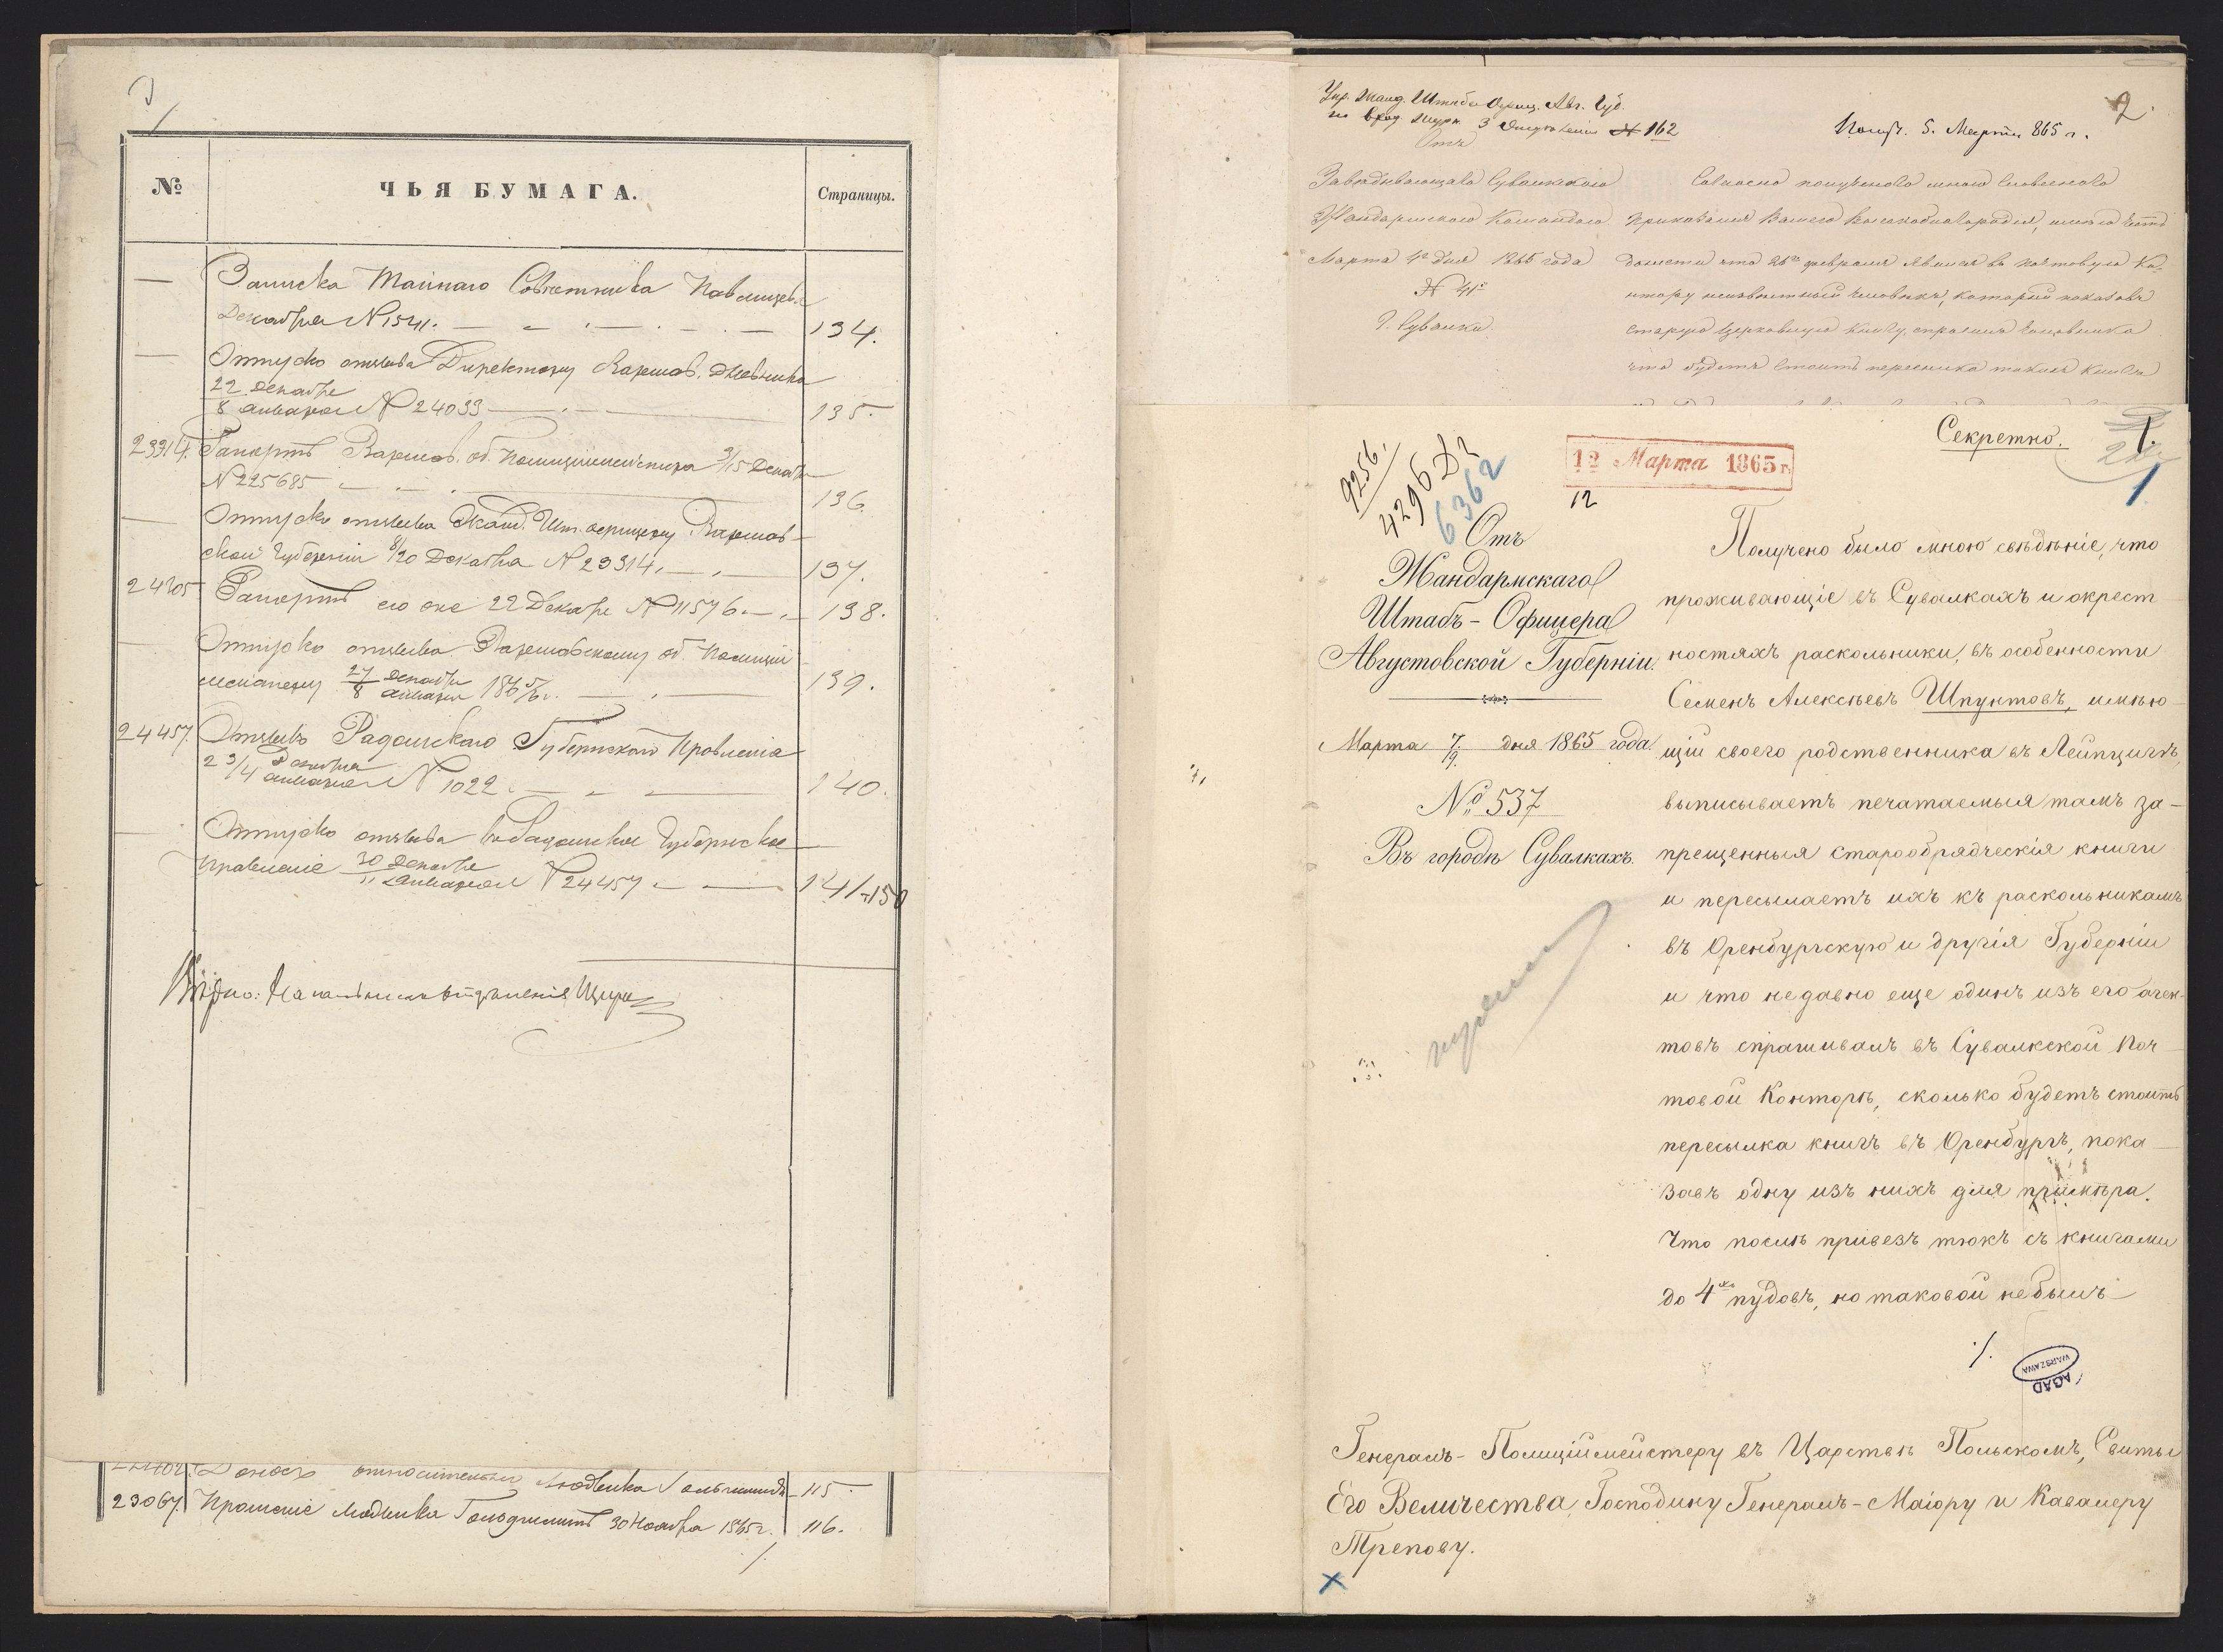 №
ЧЬЯ БУМАГА.
Страницы.
Записка Тайнаго Совѣтника Павлищева
Декабря N 1541.
134.
Отпускъ отзыва Директору Варшав. Дневника
22 Декабря
8 Января № 24033
135.
23314. Рапортъ Варшав. об. Полиціймейстера 3/15 Декабря
N 225685
136.
Отпускъ отзыва Жанд. Шт. офицеру Варшав-
ской Губерніи 8/20 Декабря N 23314.
137.
24205 Рапортъ его же 22 Декабря № 11576.
138.
Отпускъ отзыва Варшавскому об. Полицій
мейстеру 27 Декабря
8 Января 1865/6 г.
139.
24457. Отзывъ Радомскаго Губернскаго Правленія
23 Декабря
/4 Января N 1022.
140.
Отпускъ отзыва въ Радомское Губернское
Правленіе 30 Декабря
11 Января № 24457
141-150
Вѣрно: Начальникъ Отдѣленія
относительно Людвика
115
23067. Прошеніе Людвика 30 Ноября 1865 г.
116.
Упр. Жанд. Штабъ Офиц. Авг. Губ.
по Вход. журн. 3 Отдѣленія № 162
Получ. 5. Марта 865 г.
2.
Отъ
Завѣдывающаго Сувалкскою
Жандармскою Командою
Марта 4го дня 1865 года
№ 41й
Г. Сувалки
Согласно полученнаго мною словеснаго
приказанія Вашего Высокоблагородія, имѣю честь
донести что 26го февраля явился въ почтовую Ко-
нтору неизвѣстный человѣкъ, который показавъ
старую церковную книгу, спросилъ чиновника
что будетъ стоить пересылка такихъ книгъ
Секретно.
1.
1.
9256.
4296
6362
12 Марта 1865 г.
12
Отъ
Жандармскаго
Штабъ-Офицера
Августовской Губерніи.
Марта 7/9 дня 1865 года.
№ 537
Въ городѣ Сувалкахъ.
Получено было мною свѣдѣніе, что
проживающіе въ Сувалкахъ и окрест
ностяхъ раскольники, въ особенности
Семенъ Алексѣевъ Шпунтовъ, имѣю-
щій своего родственника въ Лейпцигѣ,
выписываетъ печатаемыя тамъ за-
прещенныя старообрядческія книги
и пересылаетъ ихъ къ раскольникамъ
въ Оренбургскую и другія Губерніи
и что недавно еще одинъ изъ его аген-
товъ спрашивалъ въ Сувалкской Поч-
товой Конторѣ, сколько будетъ стоить
пересылка книгъ въ Оренбургъ, пока-
завъ одну изъ нихъ для примѣра.
Что послѣ привезъ тюкъ съ книгами
до 4хъ пудовъ, но таковой не былъ
./.
AGAD
WARSZAWA
Генералъ-Полиціймейстеру въ Царствѣ Польскомъ, Свиты
Его Величества, Господину Генералъ-Маіору и Кавалеру
Трепову.